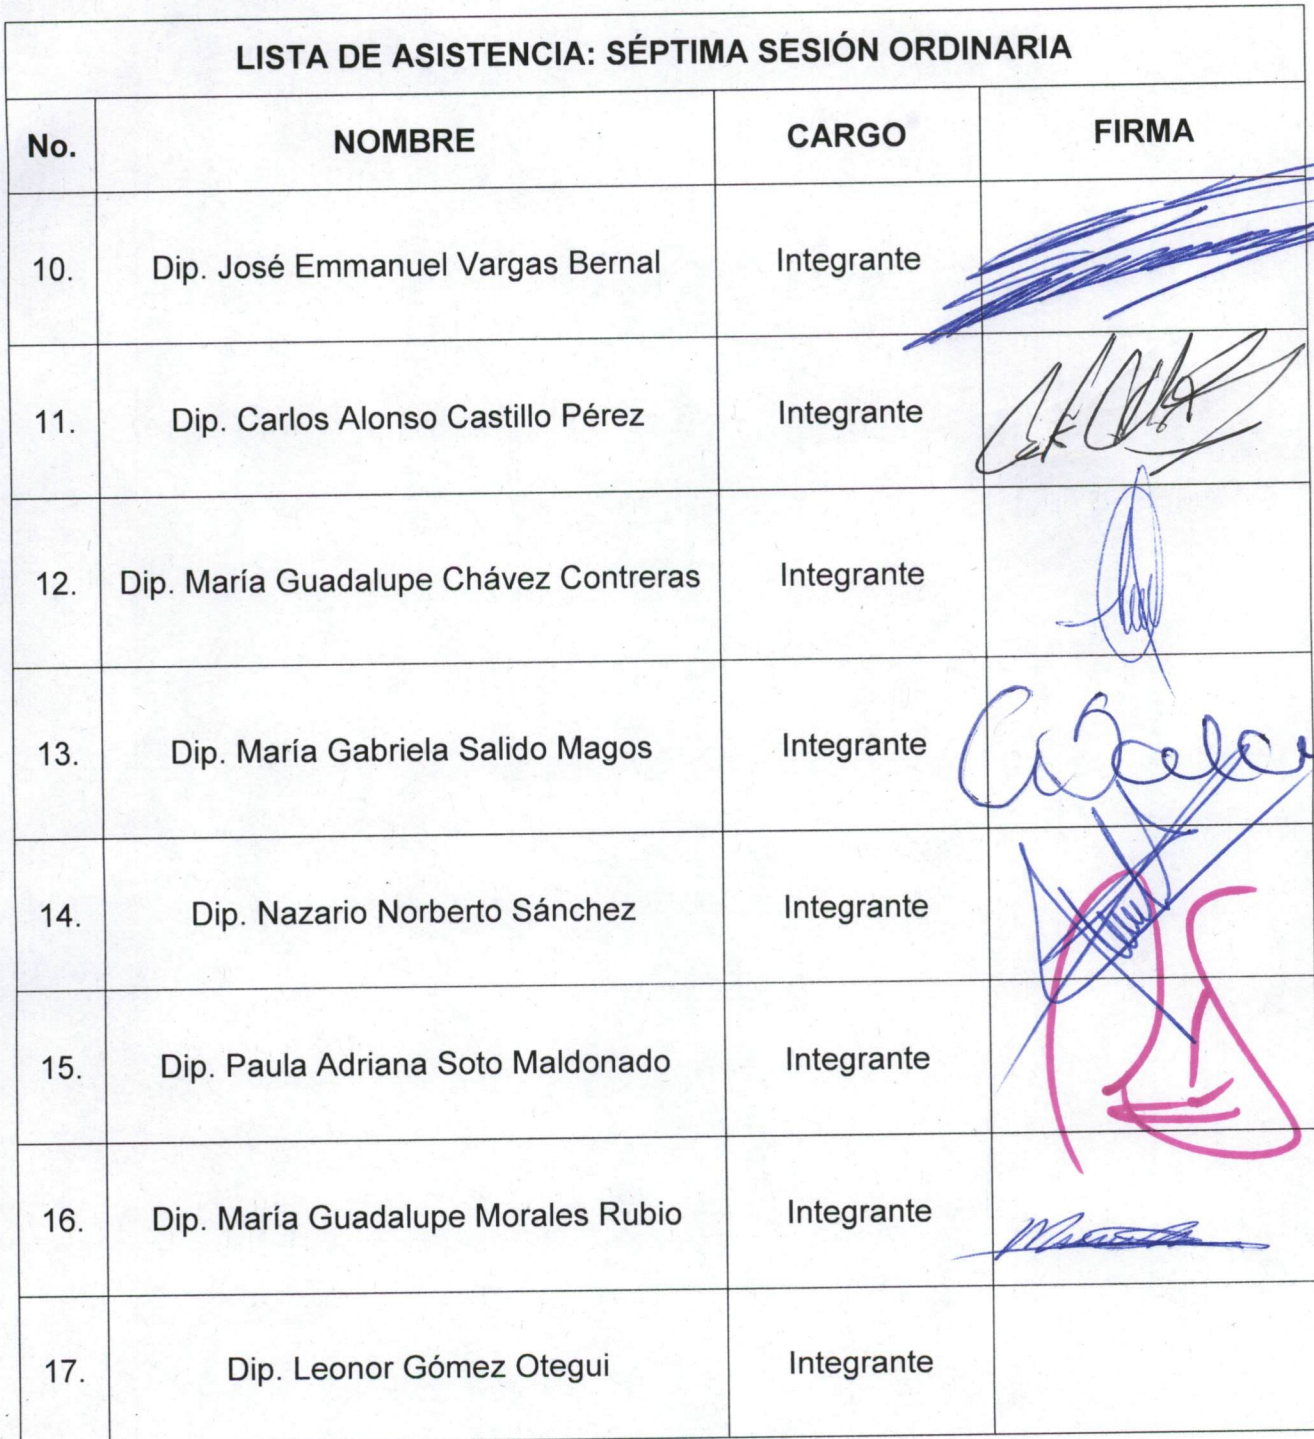 LISTA DE ASISTENCIA: SÉPTIMA SESIÓN ORDINARIA
No. NOMBRE CARGO FIRMA
10. Dip. José Emmanuel Vargas Bernal Integrante
11. Dip. Carlos Alonso Castillo Pérez Integrante
12. Dip. María Guadalupe Chávez Contreras Integrante
13. Dip. María Gabriela Salido Magos Integrante
14. Dip. Nazario Norberto Sánchez Integrante
15. Dip. Paula Adriana Soto Maldonado Integrante
16. Dip. María Guadalupe Morales Rubio Integrante
17. Dip. Leonor Gómez Otegui Integrante